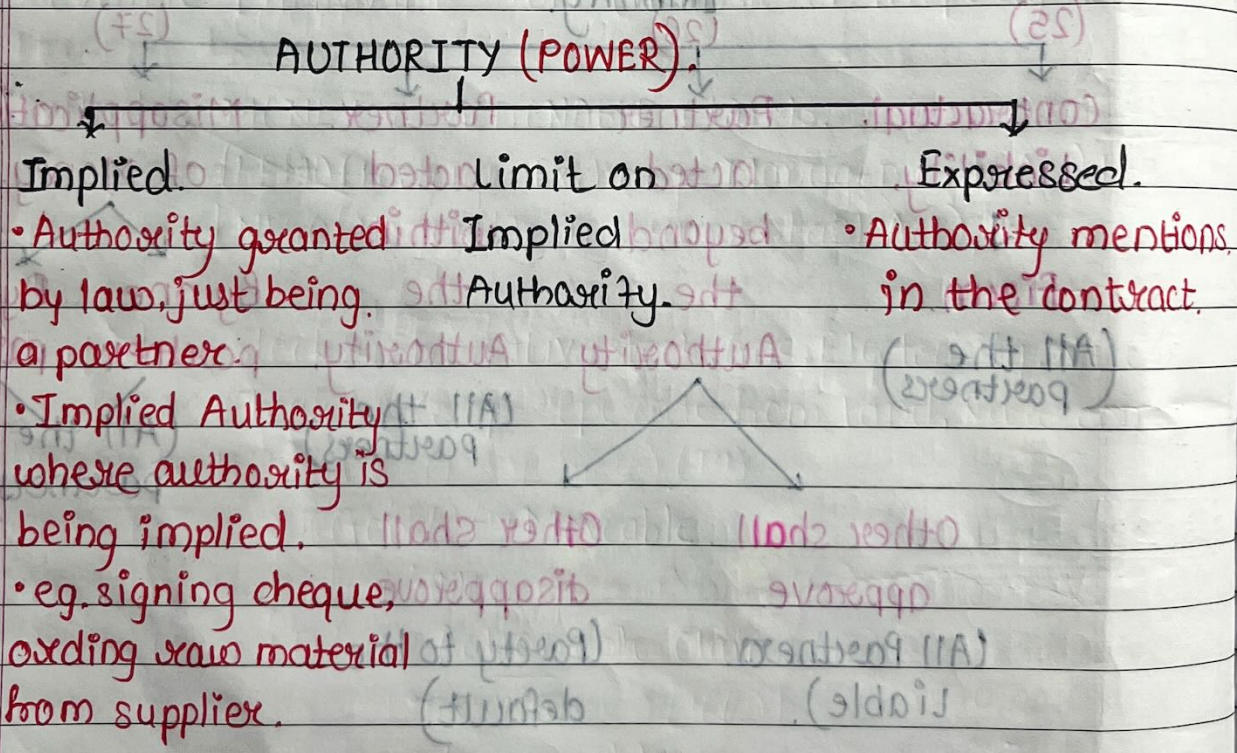 AUTHORITY (POWER).
Implied.
• Authority granted
by law, just being.
a partner.
• Implied Authority
where authority is
being implied.
• eg. signing cheque,
ording raw material
from supplier.
Limit on
Implied
Authority.
Expressed.
• Authority mentions
in the contract.